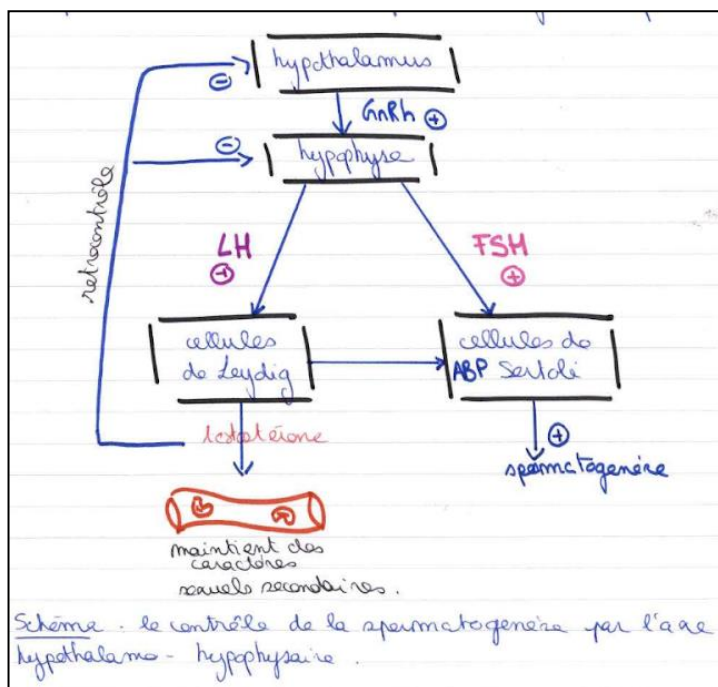 hypothalamus
⊖
GnRh ⊕
⊖
hypophyse
retrocontrôle
LH
⊕
FSH
⊕
cellules
de Leydig
cellules de
ABP Sertoli
testotérone
⊕
spermatogenére
maintient des
caractères
sexuels secondaires.
Schéma . le contrôle de la spermatogenére par l'axe
hypothalamo - hypophysaire .